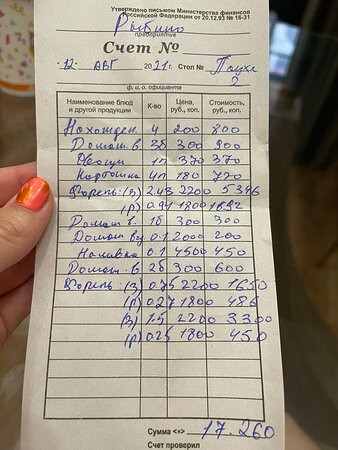 Утверждено письмом Министерства финансов
Российской Федерации от 20.12.93 № 16-31
Рыбино
предприятие
Счет №
12. АВГ 2021г. Стол №
2
ф. и. о. официанта
Наименование блюд и другой продукции К-во Цена, руб., коп. Стоимость, руб., коп.
Нахожден. 4 200 800
Домаш. в 3б 300 900
Овощи 1п 370 370
Картошка 4п 180 720
Форель: (З) 2.43 2200 5346
(Р) 0.94 1800 1692
Домаш в. 1б 300 300
Домаш 0.1 2000 200
Наливка 0.1 4500 450
Домаш. в 2б 300 600
Форель: (З) 0.75 2200 1650
(Р) 0.27 1800 486
(З) 1.5 2200 3300
(Р) 0.25 1800 450
Сумма «=» 17.260
Счет проверил